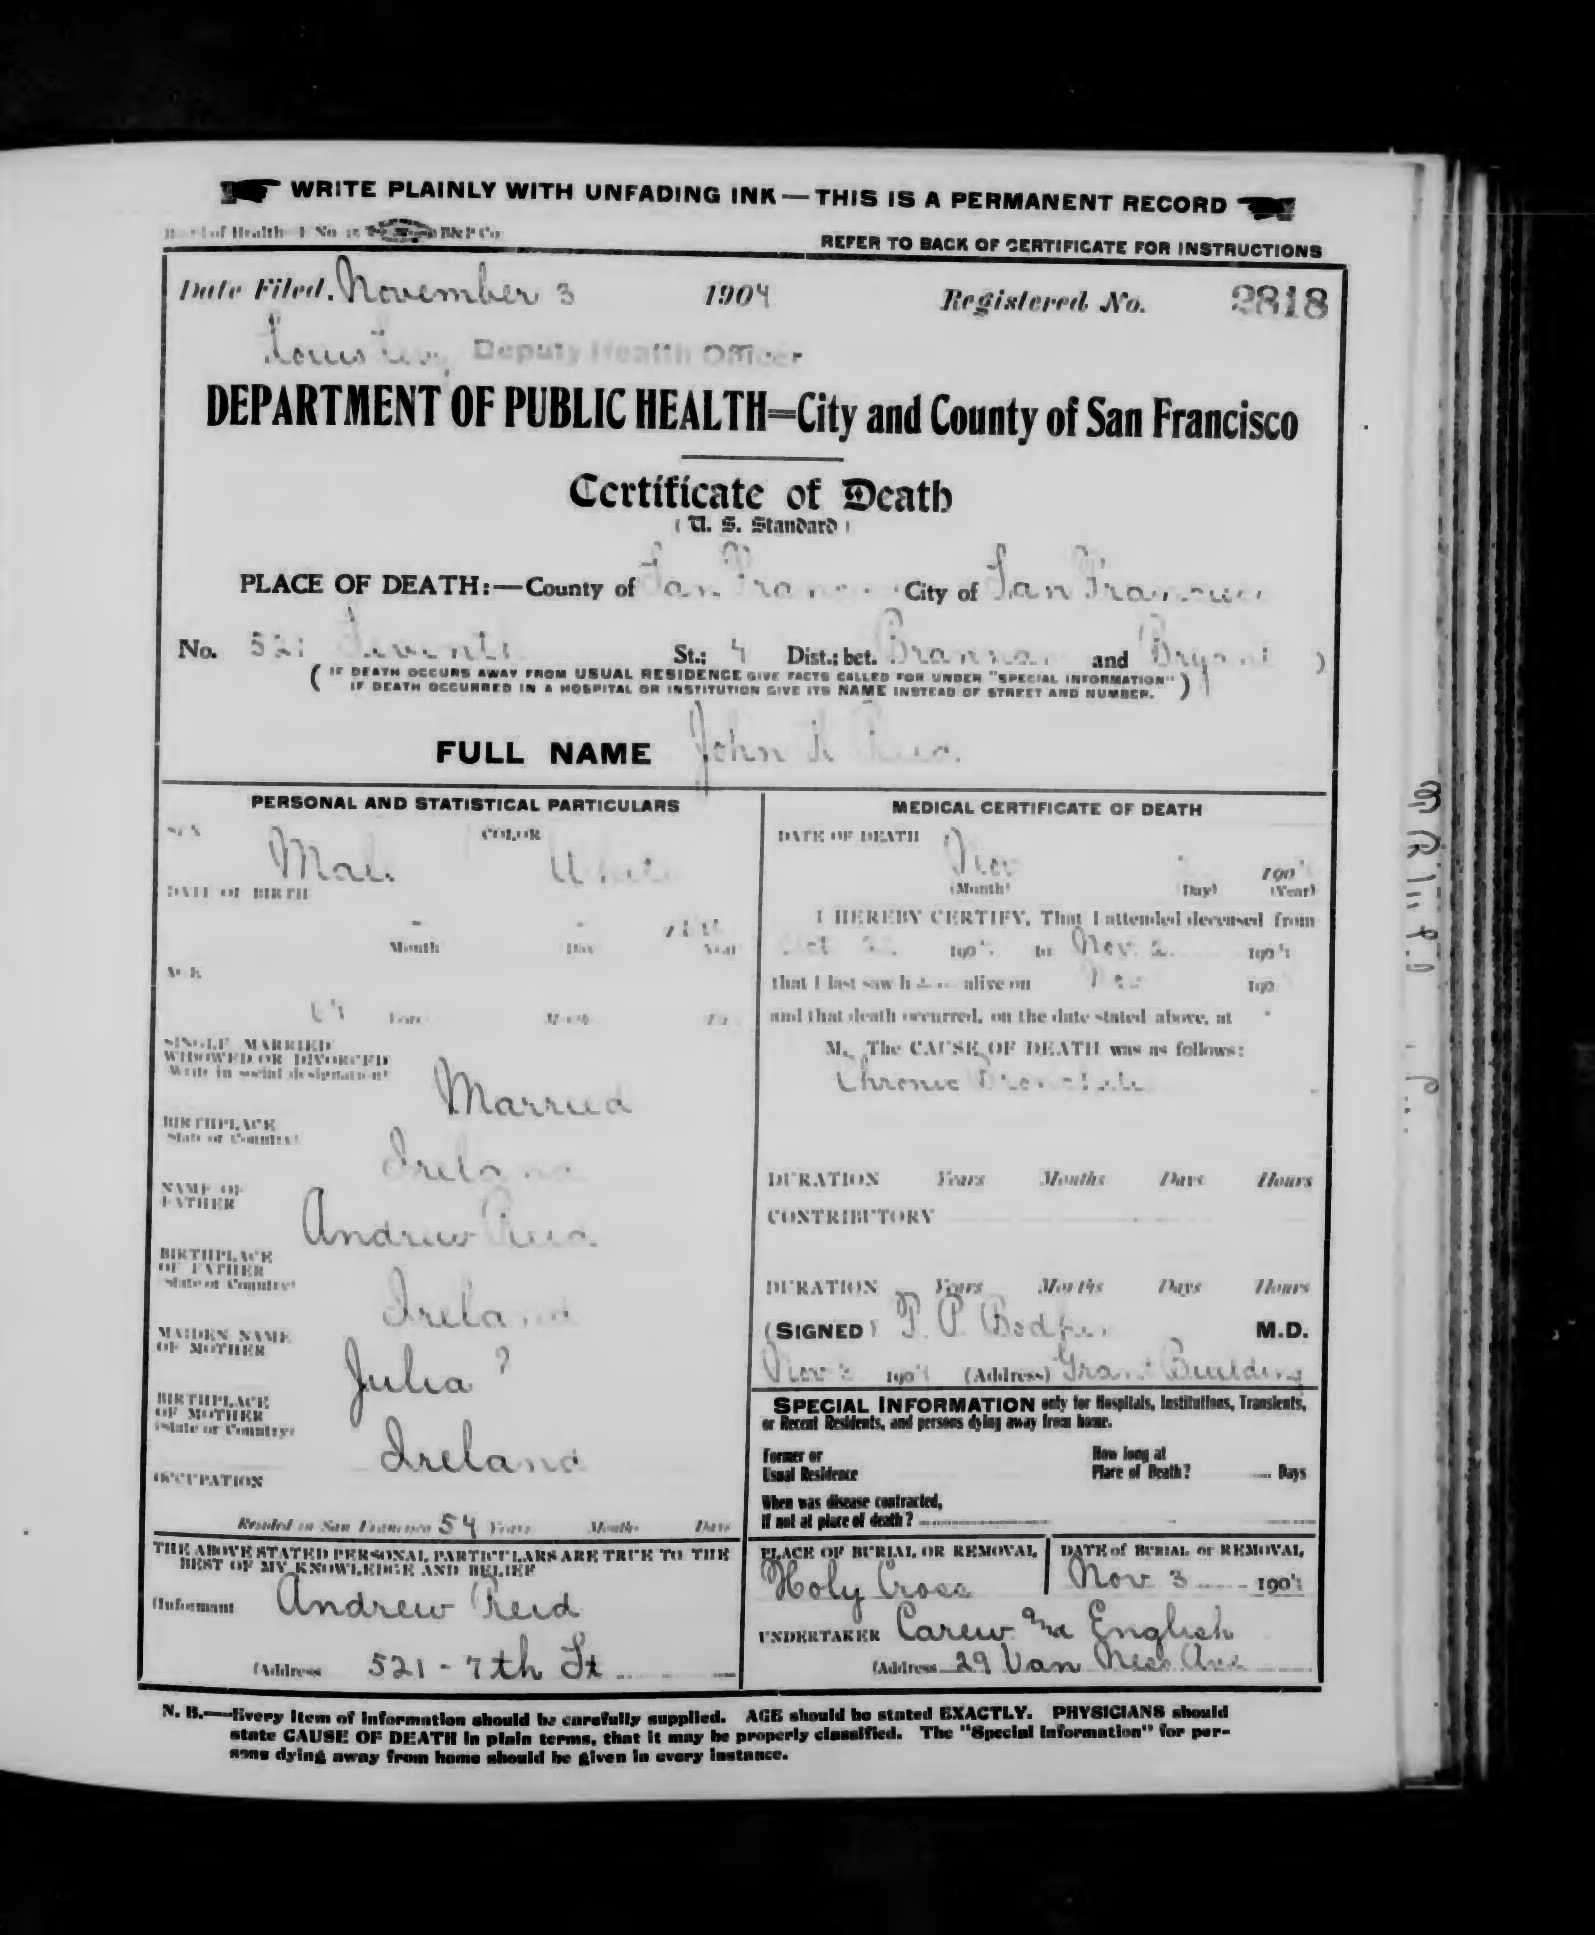 WRITE PLAINLY WITH UNFADING INK — THIS IS A PERMANENT RECORD
Board of Health No B&P Co
REFER TO BACK OF CERTIFICATE FOR INSTRUCTIONS
Date Filed. November 3 1904 Registered No. 2818
Deputy Health Officer
DEPARTMENT OF PUBLIC HEALTH=City and County of San Francisco
Certificate of Death
(U. S. Standard)
PLACE OF DEATH:—County of San City of San Francisco
No. 521 St.; 4 Dist.; bet. Brannan and Bryant )
( IF DEATH OCCURS AWAY FROM USUAL RESIDENCE GIVE FACTS CALLED FOR UNDER "SPECIAL INFORMATION"
IF DEATH OCCURRED IN A HOSPITAL OR INSTITUTION GIVE ITS NAME INSTEAD OF STREET AND NUMBER. )
FULL NAME John
PERSONAL AND STATISTICAL PARTICULARS
SEX Male COLOR White
DATE OF BIRTH
Month Day Year
AGE
Years Months Days
SINGLE MARRIED
WIDOWED OR DIVORCED
Write in social designation Married
BIRTHPLACE
State or Country Ireland
NAME OF
FATHER Andrew Reid
BIRTHPLACE
OF FATHER
State or Country Ireland
MAIDEN NAME
OF MOTHER Julia ?
BIRTHPLACE
OF MOTHER
(State or Country) Ireland
OCCUPATION
Resided in San Francisco 54 Years Months Days
THE ABOVE STATED PERSONAL PARTICULARS ARE TRUE TO THE
BEST OF MY KNOWLEDGE AND BELIEF
(Informant Andrew Reid
(Address 521 - 7th St
MEDICAL CERTIFICATE OF DEATH
DATE OF DEATH Nov 1904
(Month) (Day) (Year)
I HEREBY CERTIFY, That I attended deceased from
Oct 1904 to Nov. 2 1904
that I last saw h alive on Nov 190
and that death occurred, on the date stated above, at
M. The CAUSE OF DEATH was as follows:
Chronic
DURATION Years Months Days Hours
CONTRIBUTORY
DURATION Years Months Days Hours
(SIGNED) M.D.
Nov 2 1904 (Address) Grant Building
SPECIAL INFORMATION only for Hospitals, Institutions, Transients,
or Recent Residents, and persons dying away from home.
Former or
Usual Residence
How long at
Place of Death? Days
When was disease contracted,
If not at place of death?
PLACE OF BURIAL OR REMOVAL Holy Cross
DATE of BURIAL or REMOVAL Nov 3 1904
UNDERTAKER Carew and English
(Address 29 Van Ness Ave
N. B.—Every item of information should be carefully supplied. AGE should be stated EXACTLY. PHYSICIANS should
state CAUSE OF DEATH in plain terms, that it may be properly classified. The "Special Information" for per-
sons dying away from home should be given in every instance.